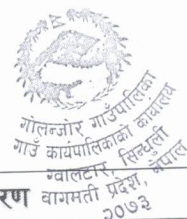 गोलन्जोर गाउँपालिका
गाउँ कार्यपालिकाको कार्यालय
ग्वालटार, सिन्धुली
रण बागमती प्रदेश, नेपाल
२०७३